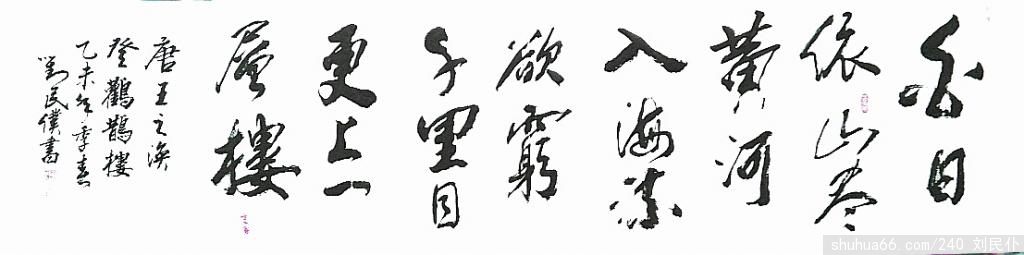 白日
依山尽
黄河
入海流
欲窮
千里目
更上一
層樓
唐王之渙
登鸛鵲樓
乙未年季春
劉民僕書
shuhua66.com/240 刘民仆